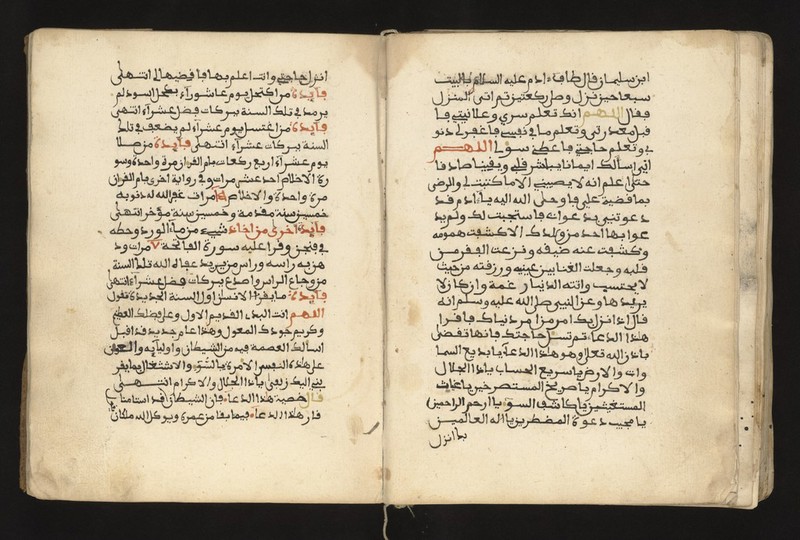 ابن سليمان قال طاف ءادم عليه السلام بالبيت
سبعا حين نزل وصلى ركعتين ثم اتى المنزل
فقال اللهم انك تعلم سري وعلانيتي فا
قبل معذرتي وتعلم ما في نفسي فاغفر لي ذنو
بي وتعلم حاجتي فاعطني سؤلي اللهم
اني اسالك ايمانا يباشر قلبي ويقينا صادقا
حتى اعلم انه لا يصيبني الا ما كتبت لي والرضى
بما قضيت علي فاوحى الله اليه يا ءادم قد
دعوتني بدعوات فاستجبت لك ولم يد
عوا بها احد من ولدك الا كشفت همومه
وكشفت عنه ضيقه ونزعت الفقر من
قلبه وجعلت الغنا بين عينيه ورزقته من حيث
لا يحتسب واتته الدنيا رغمة وان كان لا
يريدها وعن النبي صلى الله عليه وسلم انه
قال اذا نزل بك امر من امر دنياك فاقرا
هذا الدعاء ثم تسئل حاجتك فانها تقضى
باذن الله تعلى وهو هذا الدعاء يا بديع السما
وات والارض يا سريع الحساب يا ذا الجلال
والاكرام يا صريخ المستصرخين يا غياث
المستغيثين يا كاشف السوء يا ارحم الراحمين
يا مجيب دعوة المضطرين يا اله العالمين
بك انزل
انزل حاجتي وانت اعلم بها فاقضيها لي انتهى
فايدة من اكتحل يوم عاشوراء بكحل اسود لم
يرمد في تلك السنة ببركات فضل عشراء انتهى
فايدة من اغتسل يوم عشراء لم يضعف في تلك
السنة ببركات عشراء انتهى فايدة من صلا
يوم عشراء اربع ركعات بام القران مرة واحدة وسو
رة الاخلاص احد عشر مرات وفي رواية اخرى بام القران
مرة واحدة والاخلاص مرات غفر الله له ذنوبه
خمسين سنة مقدمة وخمسين سنة مؤخر انتهى
فايدة اخرى من اخذ شيء من ماء الورد وحطه
في فنجن وقرا عليه سورة الفاتحة ٧ مرات ود
هن به راسه وراس من يريد عفاه الله تلك السنة
من وجاع الراس واصدع ببركات فضل عشراء انتهى
فايدة ما يقرا الانسان اول السنة الجديدة تقول
اللهم انت البدي القديم الاول وعلى فضلك العظيم
وكريم جودك المعول وهذا عام جديد قد اقبل
اسالك العصمة فيه من الشيطان واوليايه والعون
على هذه النفس الامرة بالسوء والاشتغال بما يقر
بني اليك زلفى يا ذا الجلال والاكرام انتهى
قال خصية هذا الدعاء فان الشيطان قد استامنا
قار هذا الدعاء فيما بقا من عمره ويوكل الله ملكان